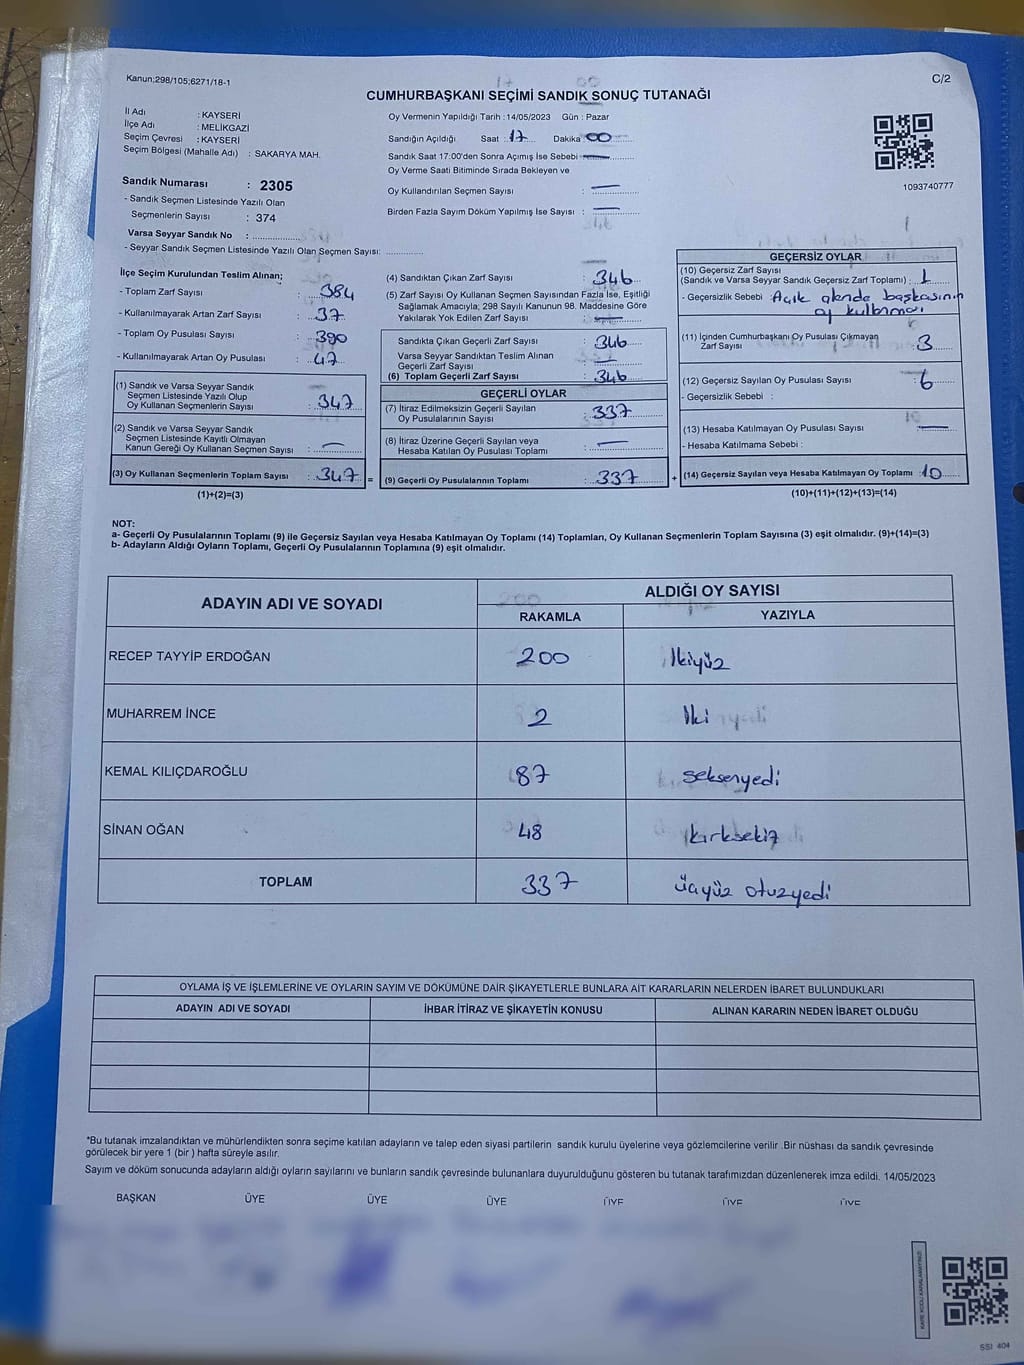 Kanun;298/105;6271/18-1
C/2
CUMHURBAŞKANI SEÇİMİ SANDIK SONUÇ TUTANAĞI
İl Adı : KAYSERİ
İlçe Adı : MELİKGAZİ
Seçim Çevresi : KAYSERİ
Seçim Bölgesi (Mahalle Adı) : SAKARYA MAH.
Sandık Numarası : 2305
- Sandık Seçmen Listesinde Yazılı Olan
Seçmenlerin Sayısı : 374
Varsa Seyyar Sandık No : ....................
- Seyyar Sandık Seçmen Listesinde Yazılı Olan Seçmen Sayısı: ..............
Oy Vermenin Yapıldığı Tarih : 14/05/2023 Gün : Pazar
Sandığın Açıldığı Saat : 17 Dakika : 00
Sandık Saat 17:00'den Sonra Açımış İse Sebebi : —
Oy Verme Saati Bitiminde Sırada Bekleyen ve
Oy Kullandırılan Seçmen Sayısı : —
Birden Fazla Sayım Döküm Yapılmış İse Sayısı : —
1093740777
İlçe Seçim Kurulundan Teslim Alınan;
- Toplam Zarf Sayısı : 384
- Kullanılmayarak Artan Zarf Sayısı : 37
- Toplam Oy Pusulası Sayısı : 390
- Kullanılmayarak Artan Oy Pusulası : 47
(1) Sandık ve Varsa Seyyar Sandık
Seçmen Listesinde Yazılı Olup
Oy Kullanan Seçmenlerin Sayısı : 347
(2) Sandık ve Varsa Seyyar Sandık
Seçmen Listesinde Kayıtlı Olmayan
Kanun Gereği Oy Kullanan Seçmen Sayısı : —
(3) Oy Kullanan Seçmenlerin Toplam Sayısı : 347 =
(1)+(2)=(3)
(4) Sandıktan Çıkan Zarf Sayısı : 346
(5) Zarf Sayısı Oy Kullanan Seçmen Sayısından Fazla İse, Eşitliği
Sağlamak Amacıyla, 298 Sayılı Kanunun 98. Maddesine Göre
Yakılarak Yok Edilen Zarf Sayısı : —
Sandıkta Çıkan Geçerli Zarf Sayısı : 346
Varsa Seyyar Sandıktan Teslim Alınan
Geçerli Zarf Sayısı : —
(6) Toplam Geçerli Zarf Sayısı : 346
GEÇERLİ OYLAR
(7) İtiraz Edilmeksizin Geçerli Sayılan
Oy Pusulalarının Sayısı : 337
(8) İtiraz Üzerine Geçerli Sayılan veya
Hesaba Katılan Oy Pusulası Toplamı : —
(9) Geçerli Oy Pusulalarının Toplamı : 337 +
GEÇERSİZ OYLAR
(10) Geçersiz Zarf Sayısı
(Sandık ve Varsa Seyyar Sandık Geçersiz Zarf Toplamı) : 1
- Geçersizlik Sebebi : Açık alanda başkasının
oy kullanması
(11) İçinden Cumhurbaşkanı Oy Pusulası Çıkmayan
Zarf Sayısı : 3
(12) Geçersiz Sayılan Oy Pusulası Sayısı : 6
- Geçersizlik Sebebi :
(13) Hesaba Katılmayan Oy Pusulası Sayısı : —
- Hesaba Katılmama Sebebi :
(14) Geçersiz Sayılan veya Hesaba Katılmayan Oy Toplamı : 10
(10)+(11)+(12)+(13)=(14)
NOT:
a- Geçerli Oy Pusulalarının Toplamı (9) ile Geçersiz Sayılan veya Hesaba Katılmayan Oy Toplamı (14) Toplamları, Oy Kullanan Seçmenlerin Toplam Sayısına (3) eşit olmalıdır. (9)+(14)=(3)
b- Adayların Aldığı Oyların Toplamı, Geçerli Oy Pusulalarının Toplamına (9) eşit olmalıdır.
ADAYIN ADI VE SOYADI
ALDIĞI OY SAYISI
RAKAMLA YAZIYLA
RECEP TAYYİP ERDOĞAN 200 İkiyüz
MUHARREM İNCE 2 İki
KEMAL KILIÇDAROĞLU 87 seksenyedi
SİNAN OĞAN 48 kırksekiz
TOPLAM 337 üçyüz otuzyedi
OYLAMA İŞ VE İŞLEMLERİNE VE OYLARIN SAYIM VE DÖKÜMÜNE DAİR ŞİKAYETLERLE BUNLARA AİT KARARLARIN NELERDEN İBARET BULUNDUKLARI
ADAYIN ADI VE SOYADI İHBAR İTİRAZ VE ŞİKAYETİN KONUSU ALINAN KARARIN NEDEN İBARET OLDUĞU
*Bu tutanak imzalandıktan ve mühürlendikten sonra seçime katılan adayların ve talep eden siyasi partilerin sandık kurulu üyelerine veya gözlemcilerine verilir .Bir nüshası da sandık çevresinde
görülecek bir yere 1 (bir ) hafta süreyle asılır.
Sayım ve döküm sonucunda adayların aldığı oyların sayılarını ve bunların sandık çevresinde bulunanlara duyurulduğunu gösteren bu tutanak tarafımızdan düzenlenerek imza edildi. 14/05/2023
BAŞKAN ÜYE ÜYE ÜYE ÜYE ÜYE ÜYE
SSI 404